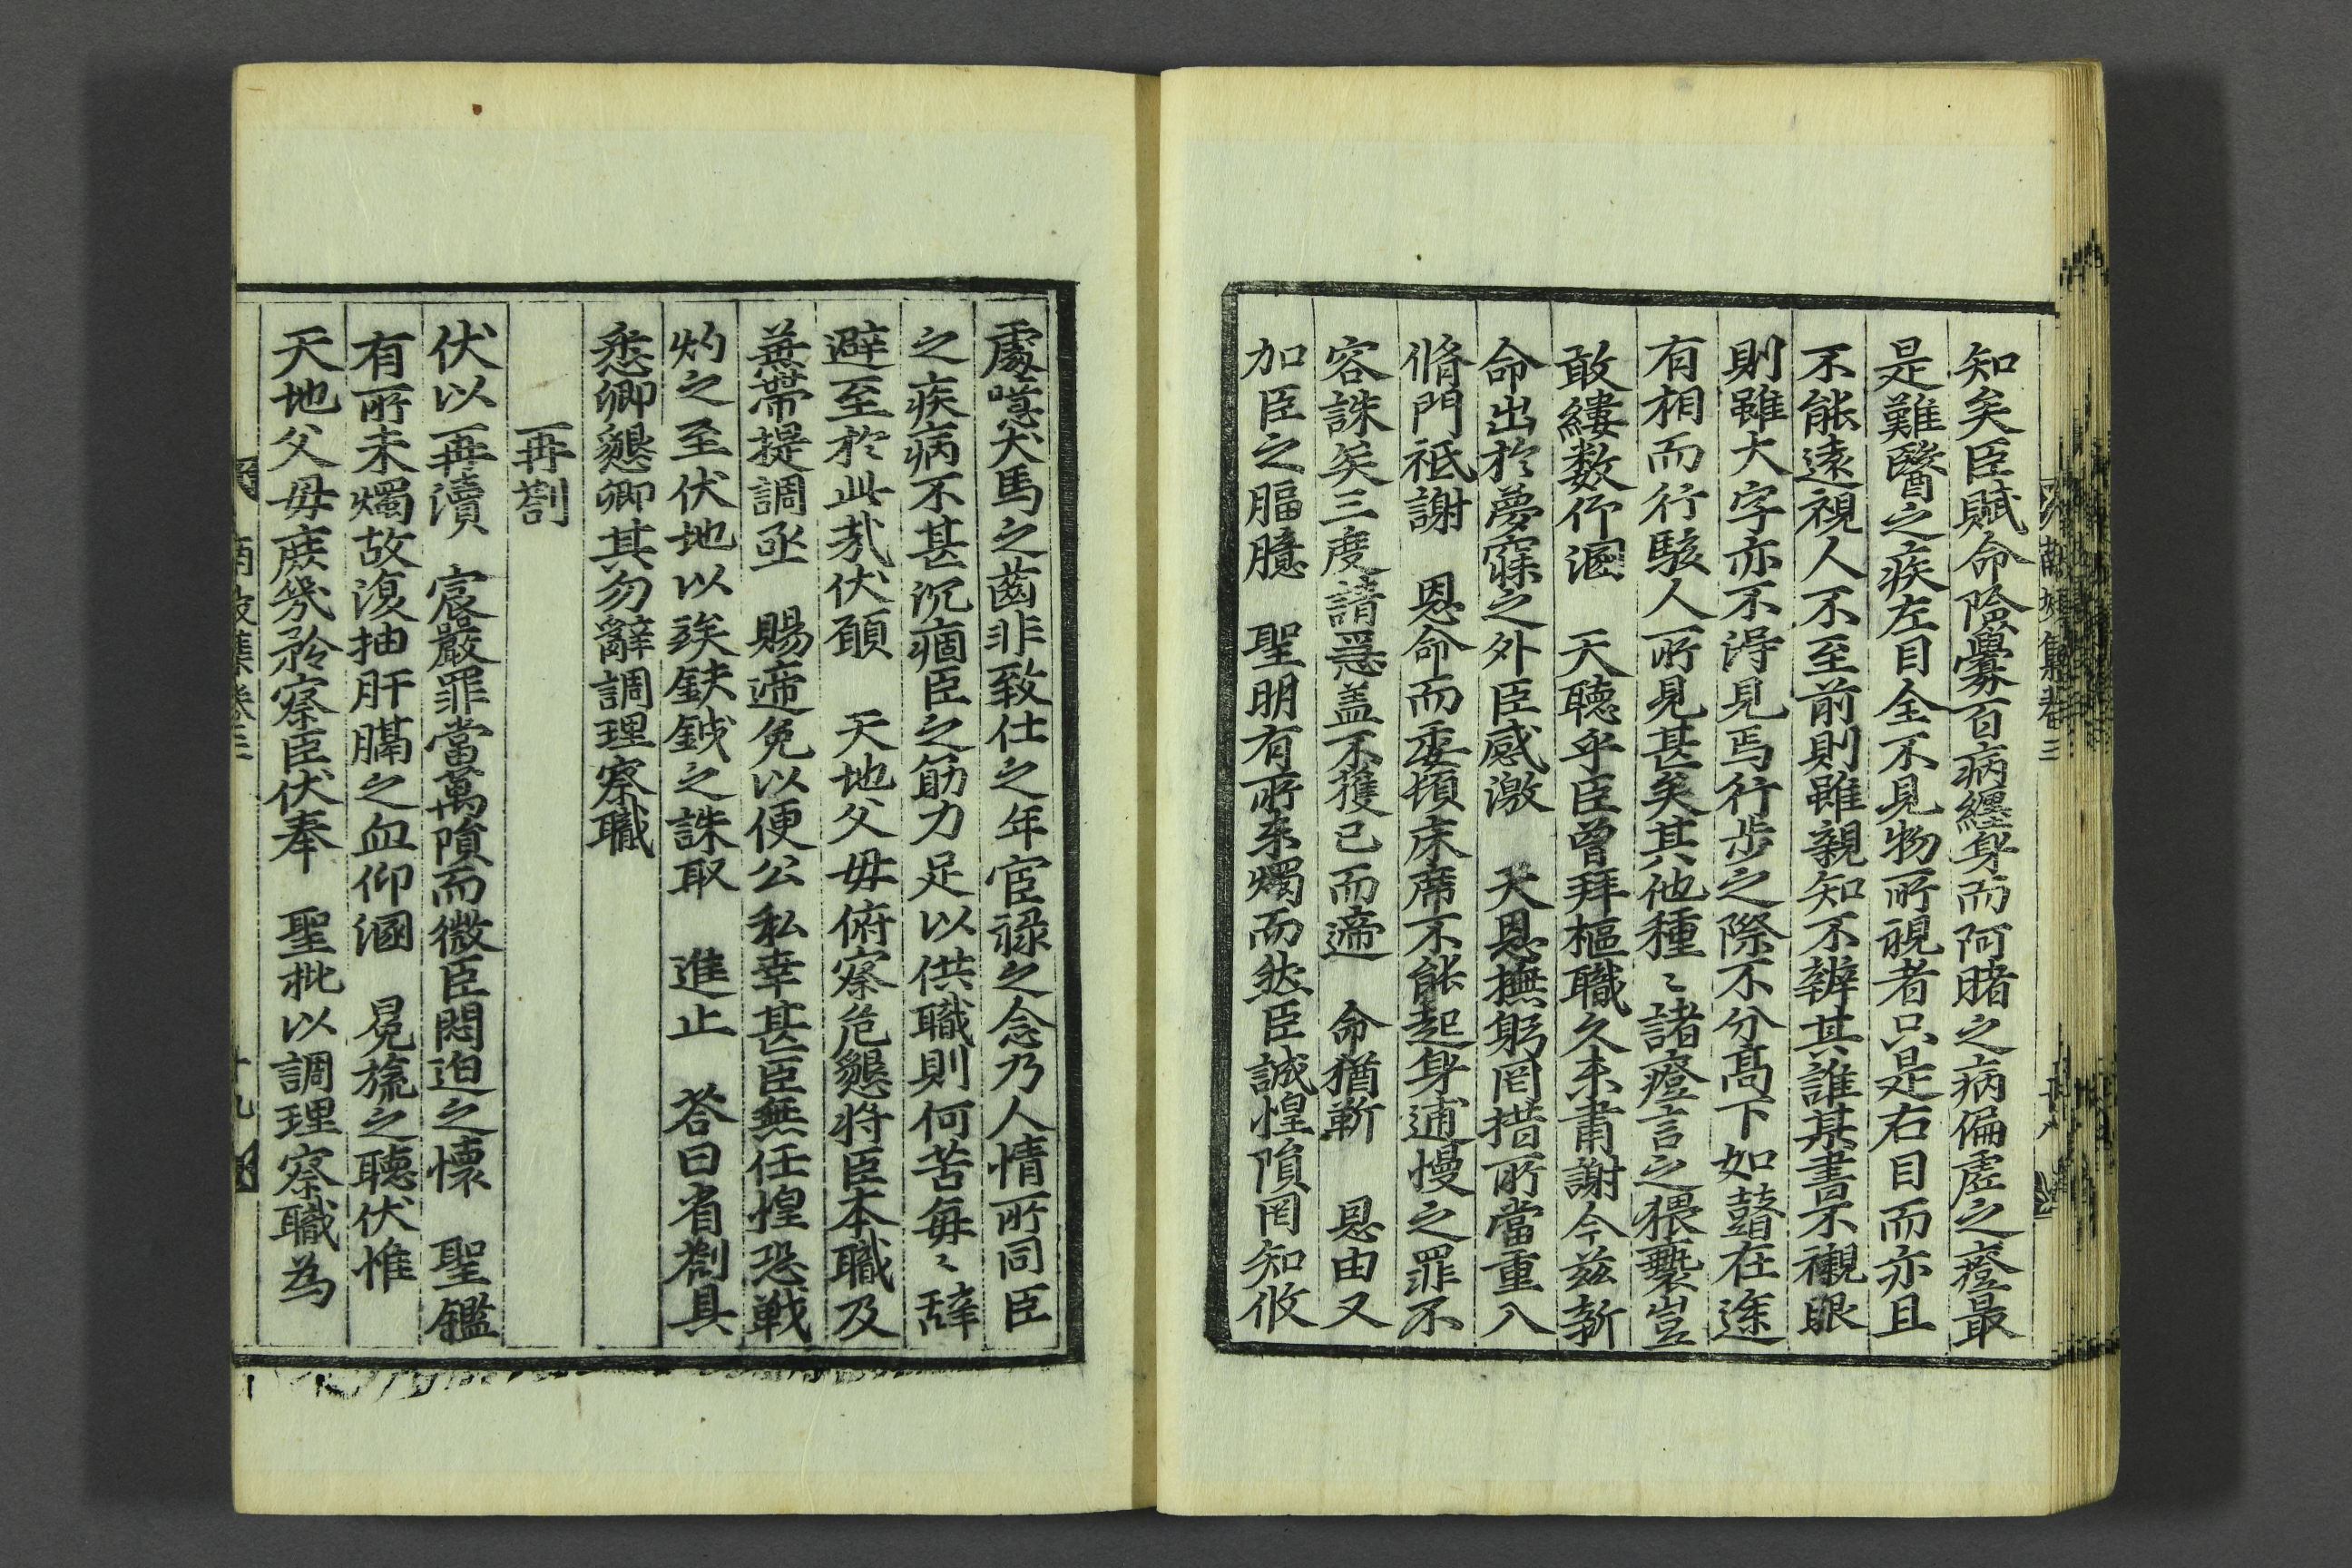 知矣臣賦命險釁百病纏身而阿睹之病偏虛之證最
是難醫之疾左目全不見物所視者只是右目而亦且
不能遠視人不至前則雖親知不辨其誰某書不襯眼
則雖大字亦不得見焉行步之際不分高下如瞽在途
有相而行駭人所見甚矣其他種〻諸證言之猥褻豈
敢縷数仰溷 天聽乎臣曾拜樞職久未肅謝今玆新
命出於夢寐之外臣感激 天恩撫躬罔措所當重入
脩門祗謝 恩命而委頓床席不能起身逋慢之罪不
容誅矣三度請急盖不獲已而遞 命猶靳 恩由又
加臣之腷臆 聖明有所未燭而然臣誠惶隕罔知攸
處噫犬馬之齒非致仕之年宦祿之念乃人情所同臣
之疾病不甚沉痼臣之筋力足以供職則何苦每〻辭
避至於此㢤伏願 天地父母俯察危懇將臣本職及
兼帶提調亟 賜遞免以便公私幸甚臣無任惶恐戰
灼之至伏地以竢鈇鉞之誅取 進止 答曰省劄具
悉卿懇卿其勿辭調理察職
再劄
伏以再瀆 宸嚴罪當萬隕而微臣悶迫之懷 聖鑑
有所未燭故復抽肝膈之血仰溷 冕旒之聽伏惟
天地父母庶幾矜察臣伏奉 聖批以調理察職為